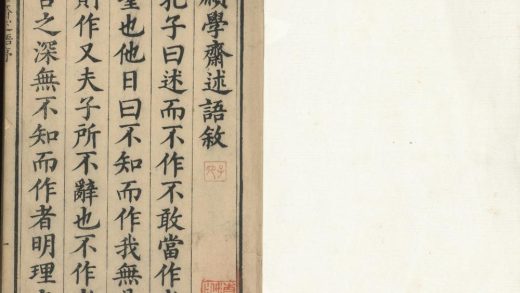 學齋述語敘
孔子曰述而不作不敢當作
聖也他日曰不知而作我無
則作又夫子所不辭也不作
言之深無不知而作者明理